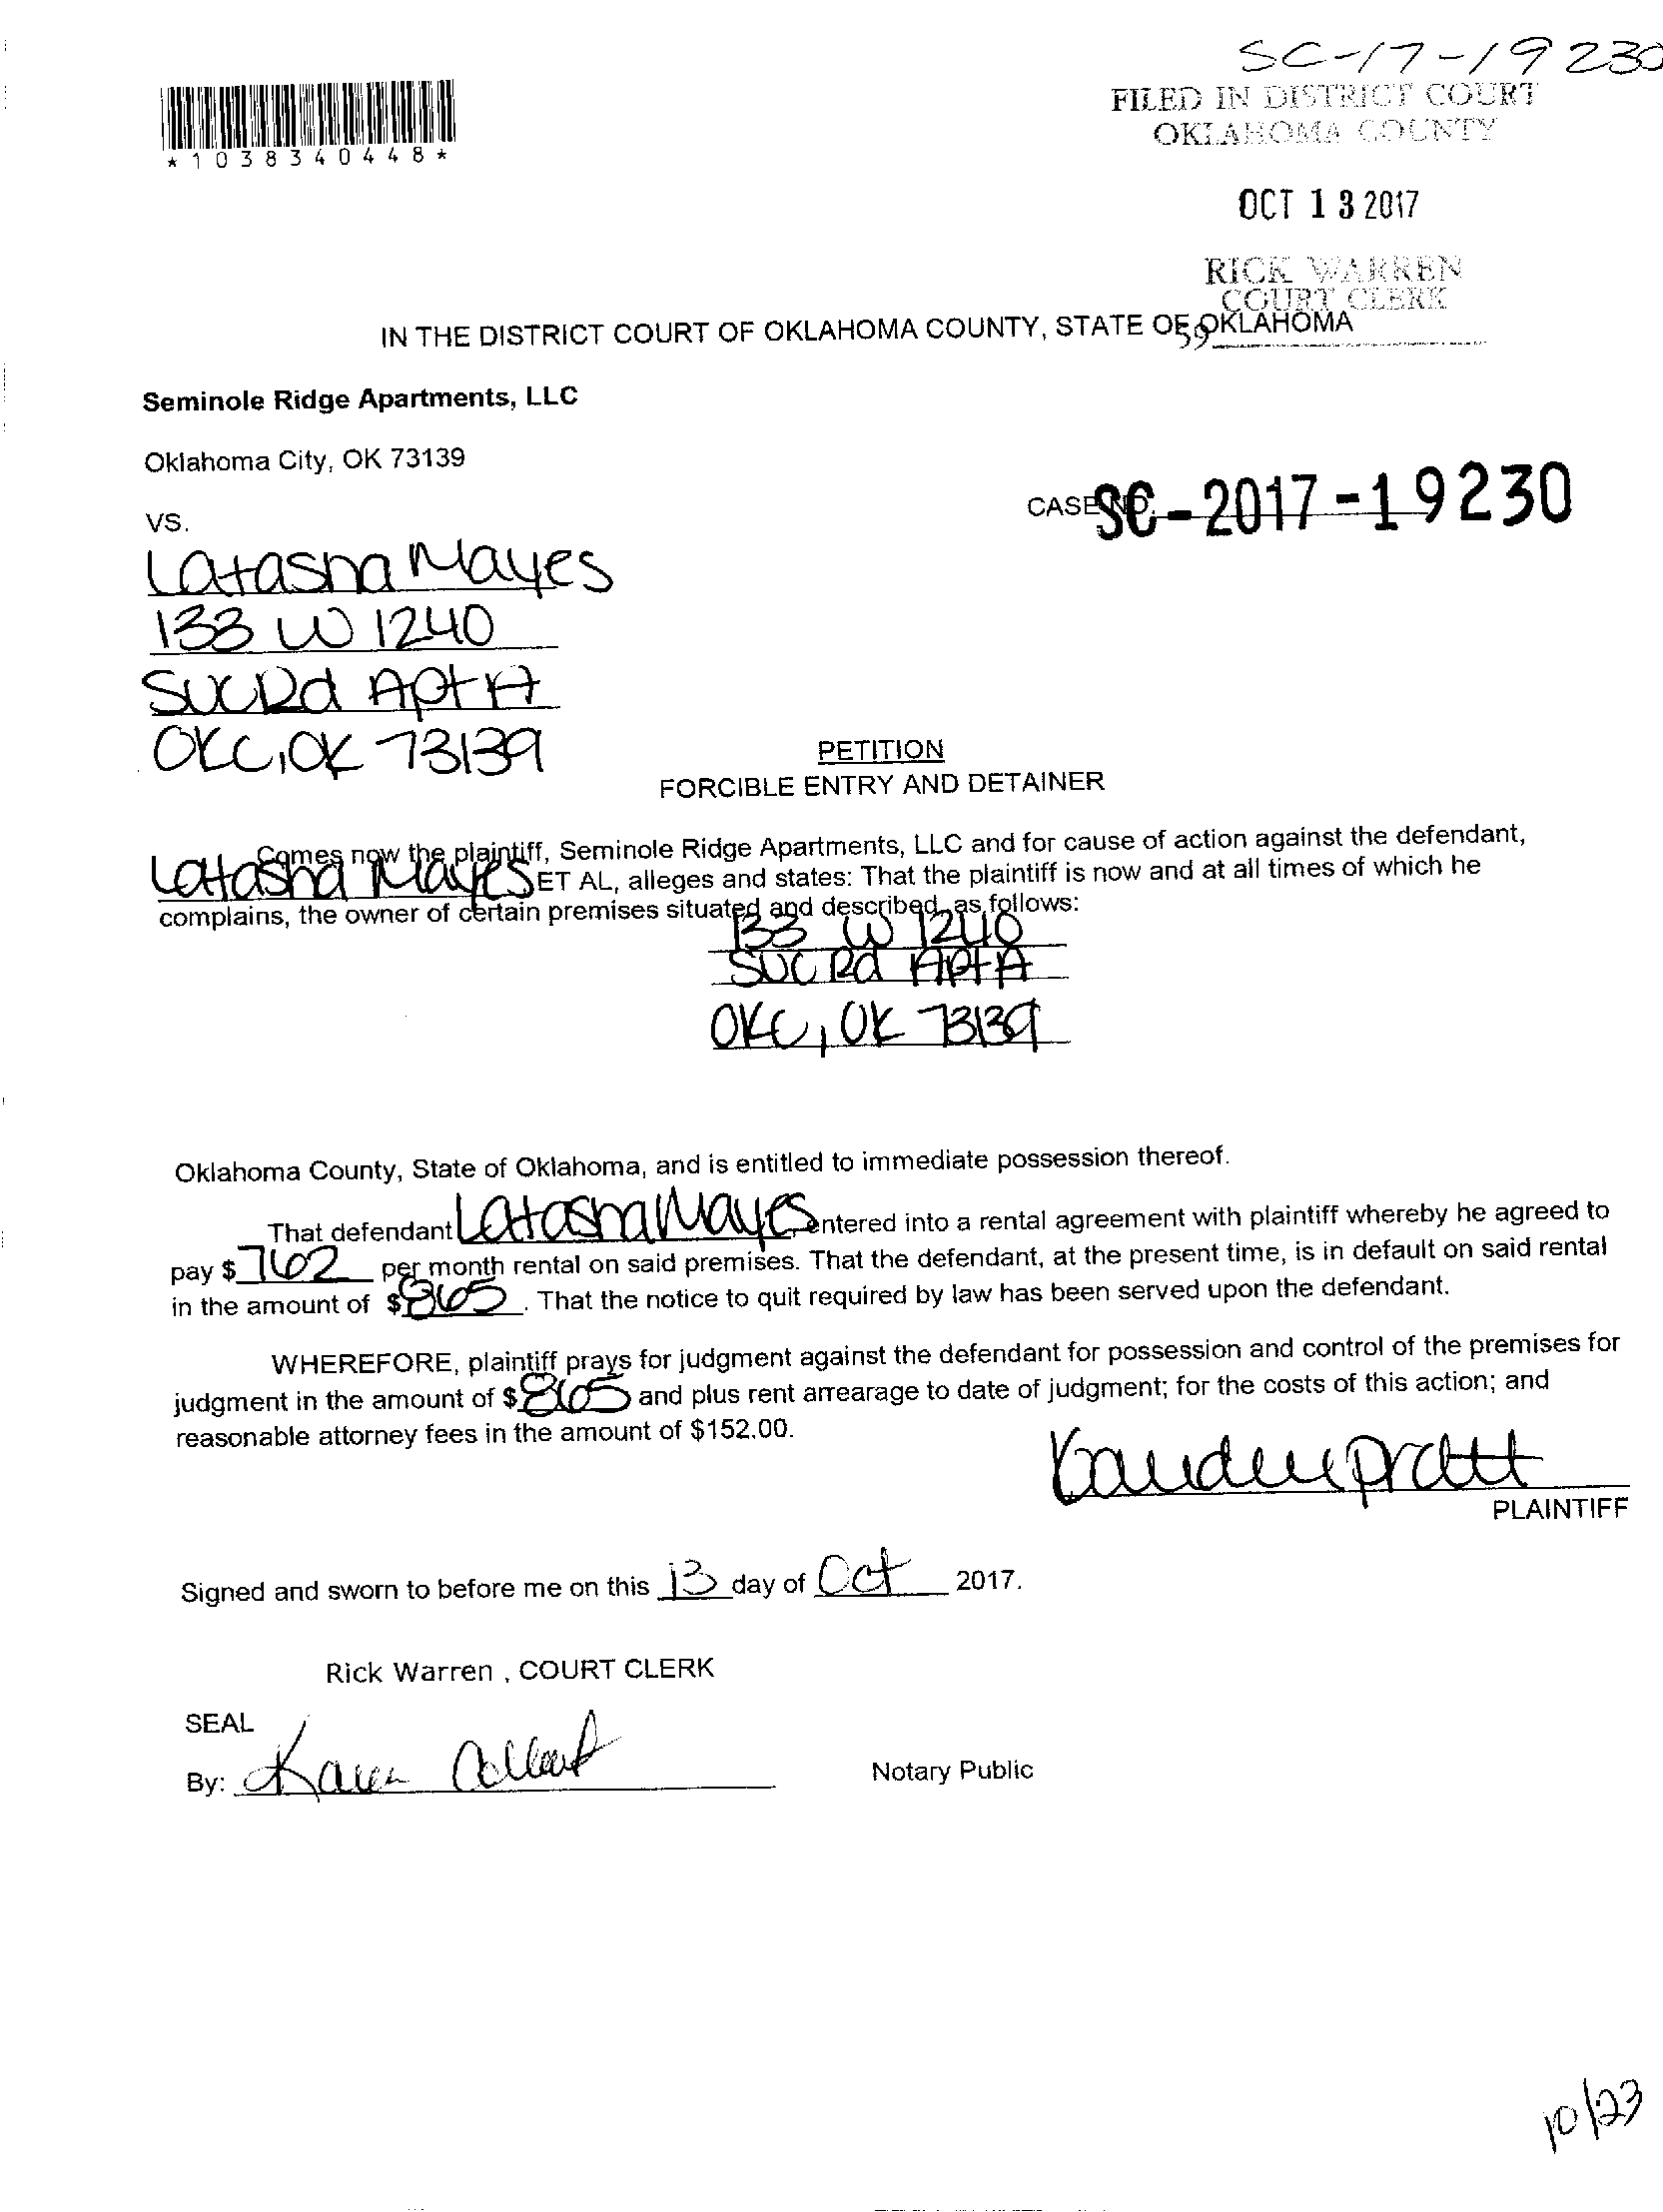 SC-17-19230
FILED IN DISTRICT COURT
OKLAHOMA COUNTY
*1038340448*
OCT 13 2017
RICK WARREN
COURT CLERK
IN THE DISTRICT COURT OF OKLAHOMA COUNTY, STATE OF OKLAHOMA
59
Seminole Ridge Apartments, LLC
Oklahoma City, OK 73139
CASE NO. SC-2017-19230
VS.
Latasha Mayes
133 W 1240
SVC Rd Apt A
OKC, OK 73139
PETITION
FORCIBLE ENTRY AND DETAINER
Comes now the plaintiff, Seminole Ridge Apartments, LLC and for cause of action against the defendant,
Latasha Mayes ET AL, alleges and states: That the plaintiff is now and at all times of which he
complains, the owner of certain premises situated and described as follows:
133 W 1240
SVC Rd Apt A
OKC, OK 73139
Oklahoma County, State of Oklahoma, and is entitled to immediate possession thereof.
That defendant Latasha Mayes, entered into a rental agreement with plaintiff whereby he agreed to
pay $ 762 per month rental on said premises. That the defendant, at the present time, is in default on said rental
in the amount of $ 865. That the notice to quit required by law has been served upon the defendant.
WHEREFORE, plaintiff prays for judgment against the defendant for possession and control of the premises for
judgment in the amount of $ 865 and plus rent arrearage to date of judgment; for the costs of this action; and
reasonable attorney fees in the amount of $152.00.
Pratt
PLAINTIFF
Signed and sworn to before me on this 13 day of Oct 2017.
Rick Warren , COURT CLERK
SEAL
By: Karen
Notary Public
10/23